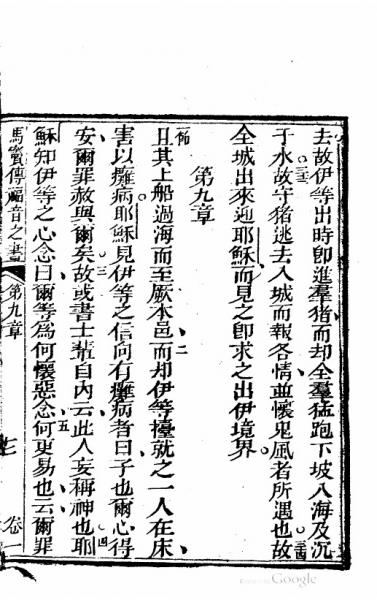 去故伊等出時即進羣猪而却全羣猛跑下坡入海及沉
于水故守猪逃去入城而報各情並懷鬼風者所遇也故
全城出來迎耶穌而見之即求之出伊境界
第九章
且其上船過海而至厥本邑而却伊等擡就之一人在床
害以癱病耶穌見伊等之信向有癱病者曰子也爾心得
安爾罪赦與爾矣故或書士輩自內云此人妄稱神也耶
穌知伊等之心念曰爾等為何懷惡念何更易也云爾罪
馬竇傳福音之書 第九章 卷一
Google